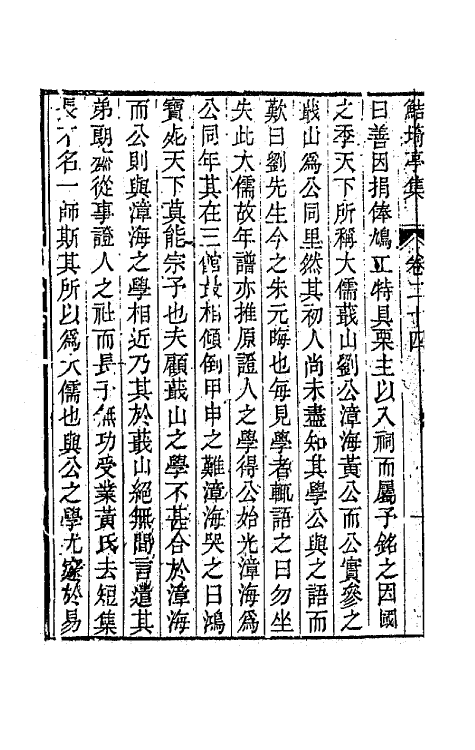 鮚埼亭集 卷二十四 一
曰善因捐俸鳩工特具栗主以入祠而屬予銘之因國
之季天下所稱大儒蕺山劉公漳海黃公而公實參之
蕺山為公同里然其初人尚未盡知其學公與之語而
歎曰劉先生今之朱元晦也每見學者輒語之曰勿坐
失此大儒故年譜亦推原證人之學得公始光漳海為
公同年其在三館最相傾倒甲申之難漳海哭之曰鴻
寶死天下莫能宗予也夫顧蕺山之學不甚合於漳海
而公則與漳海之學相近乃其於蕺山絕無閒言遣其
弟朝齋從事證人之社而長子無功受業黃氏去短集
長不名一師斯其所以為大儒也與公之學尤邃於易